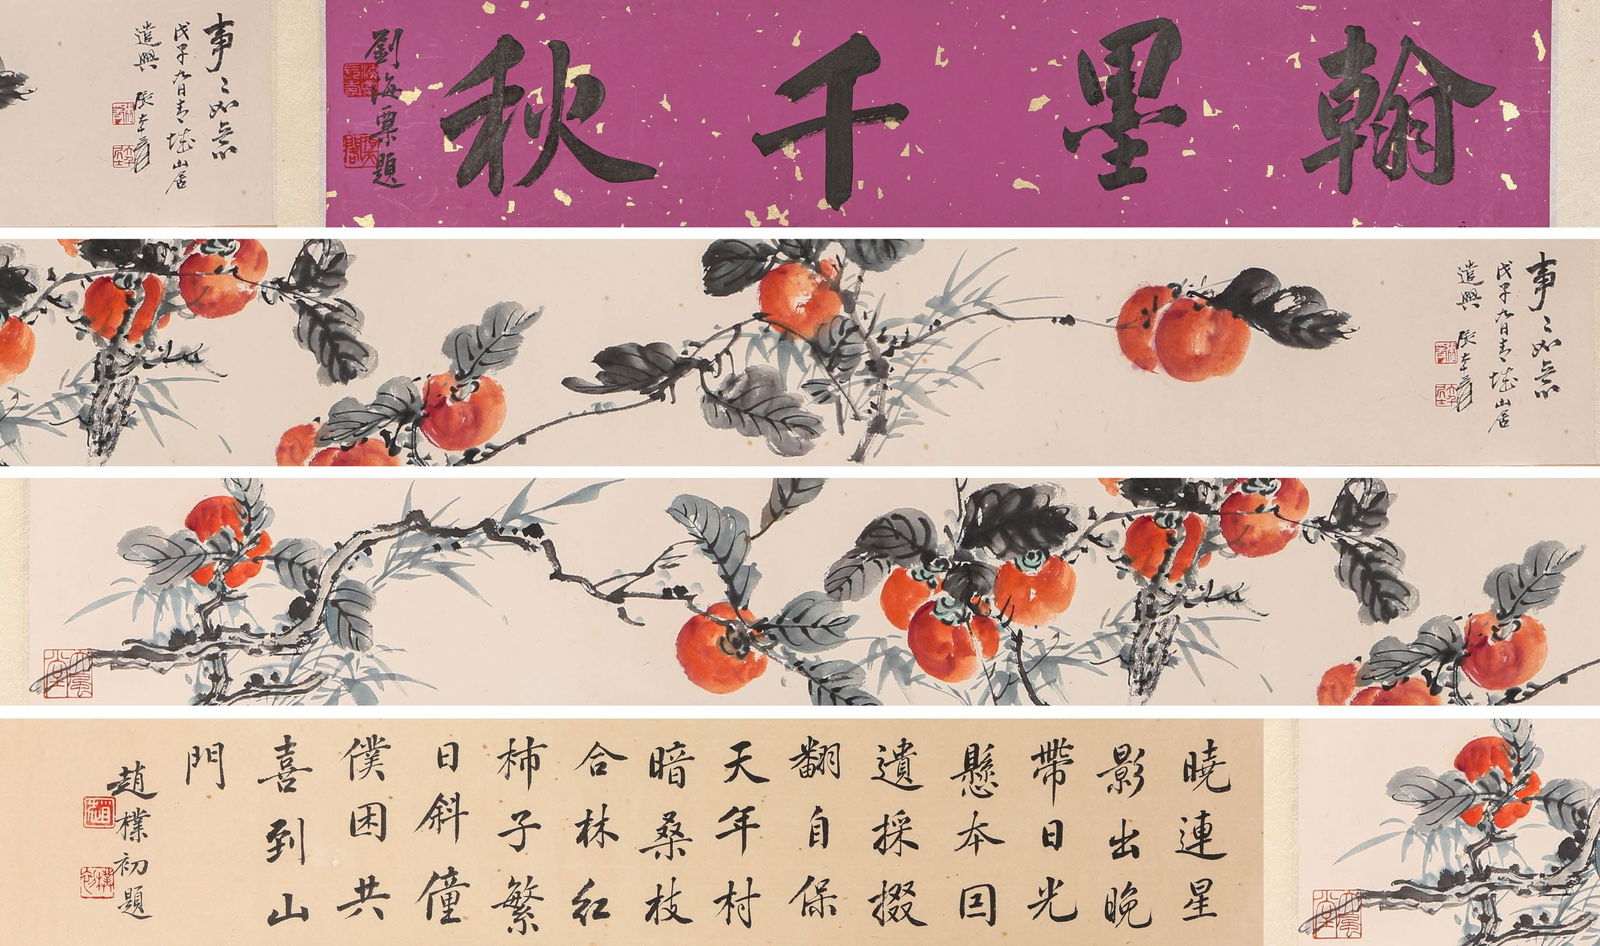 翰墨千秋
劉海粟題
事〻如意
戊子九日青城山居
遣興 張大千
事〻如意
戊子九日青城山居
遣興 張大千
曉連星
影出晚
帶日光
懸本因
遺採掇
翻自保
天年村
暗桑枝
合林紅
柿子繁
日斜僮
僕困共
喜到山
門
趙樸初題